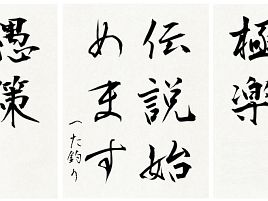 極楽
伝説始
めます
へた釣り
愚策